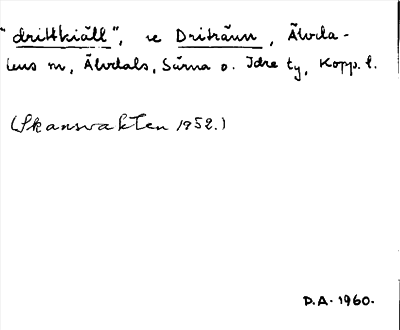 "drittkiäll", se Driträun, Älvda-
lens m, Älvdals, Särna o. Idre ty, Kopp. l.
(Skansvakten 1952.)
D.A. 1960.